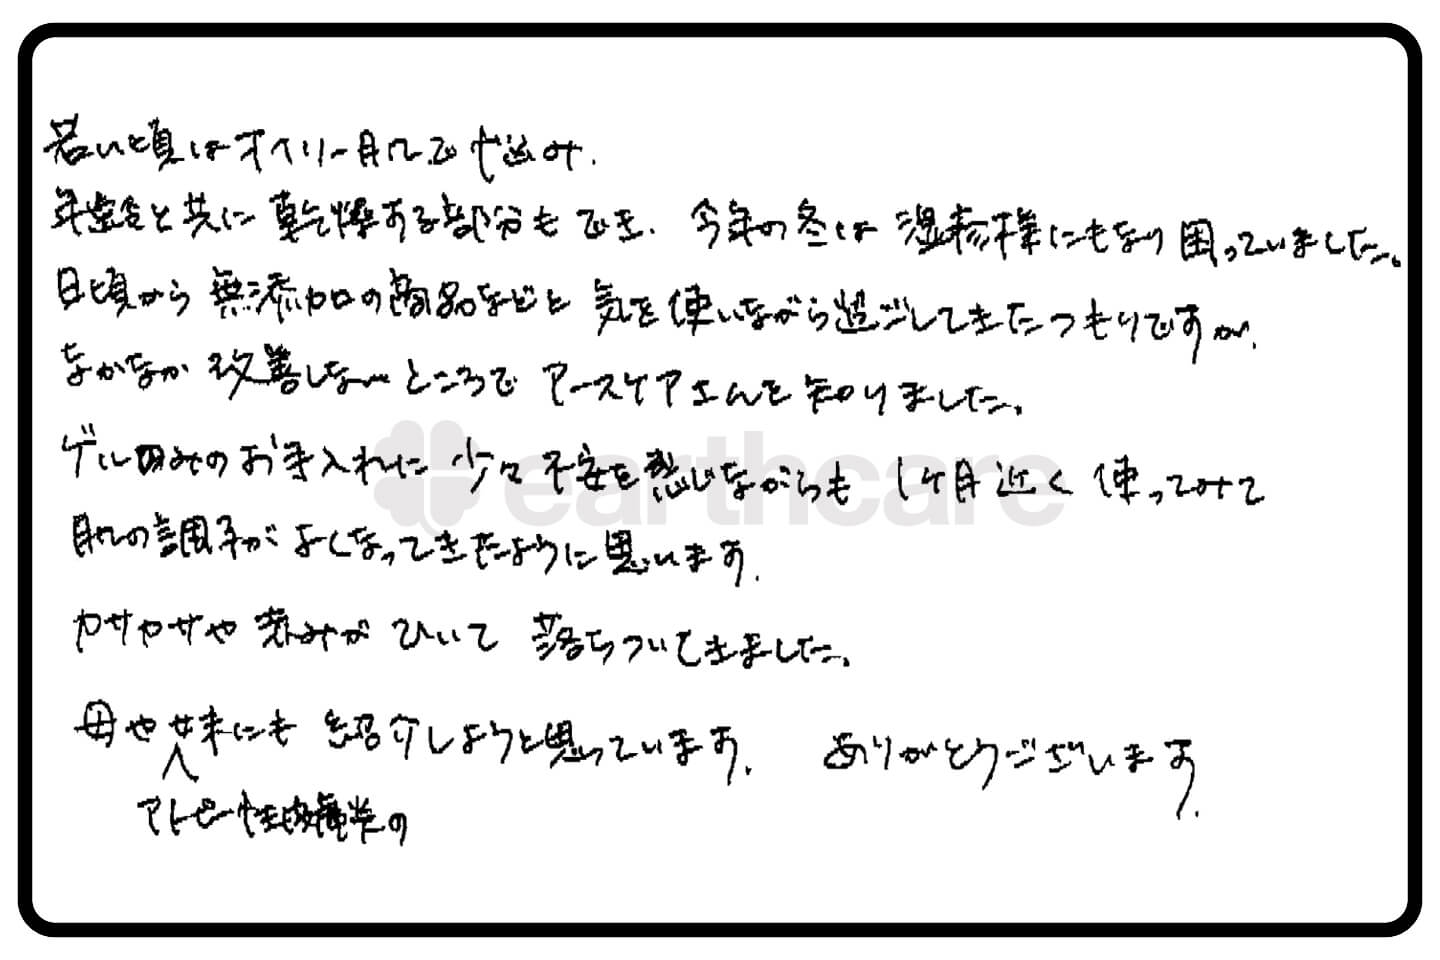 若い頃はオイリー肌で悩み、
年齢と共に乾燥する部分もでき、今年の冬は湿疹様にもなり困っていました。
日頃から無添加の商品などと気を使いながら過ごしてきたつもりですが、
なかなか改善しないところでアースケアさんを知りました。
ゲルのみのお手入れに少々不安を感じながらも1ヶ月近く使ってみて
肌の調子がよくなってきたように思います。
カサカサや赤みがひいて落ちついてきました。
母や妹にも紹介しようと思っています。ありがとうございます。
アトピー性皮膚炎の
earthcare